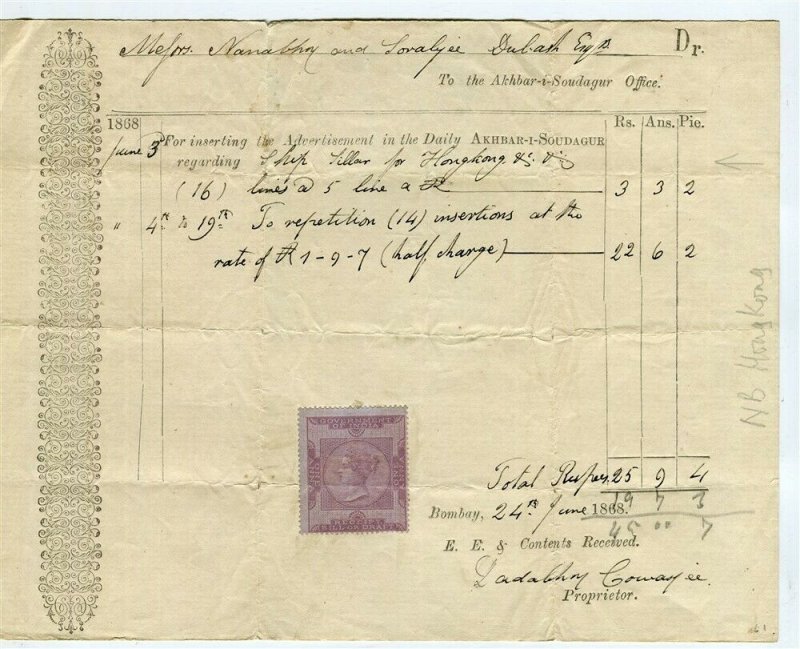 Messrs. Nanabhoy and Sorabjee Dubash Esqrs Dr.
To the Akhbar-i-Soudagur Office.
1868 Rs. Ans. Pie.
June 3rd For inserting the Advertisement in the Daily AKHBAR-I-SOUDAGUR
regarding Ship Sillar for Hongkong &c. &c
(16) lines @ 5 line a R 3 3 2
" 4th to 19th To repetition (14) insertions at the
rate of R 1-9-7 (half charge) 22 6 2
NB Hongkong
GOVERNMENT
OF INDIA
ONE ANNA
RECEIPT
BILL OR DRAFT
Total Rupees 25 9 4
19 7 3
Bombay, 24th June 1868.
45 00 7
E. E. & Contents Received.
Dadabhoy Cowasjee
Proprietor.